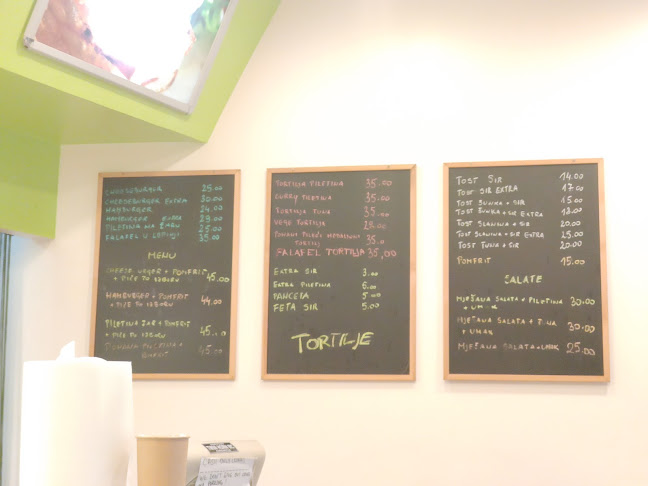 CHEESEBURGER 25.00
CHEESEBURGER EXTRA 30.00
HAMBURGER 24.00
HAMBURGER EXTRA 29.00
PILETINA NA ŽARU 25.00
FALAFEL U LEPINJI 35.00
MENU
CHEESEBURGER + POMFRIT
+ PIĆE PO IZBORU 45.00
HAMBURGER + POMFRIT
+ PIĆE PO IZBORU 44.00
PILETINA ŽAR + POMFRIT
+ PIĆE PO IZBORU 45.00
POMFRIT 45.00
TORTILJA PILETINA 35.00
CURRY PILETINA 35.00
TORTILJA TUNA 35.00
VEGE TORTILJA 28.00
POHANI PILEĆI MEDALJONI
TORTILJ 35.00
FALAFEL TORTILJA 35,00
EXTRA SIR 3.00
EXTRA PILETINA 6.00
PANCETA 5.00
FETA SIR 5.00
TORTILJE
TOST SIR 14.00
TOST SIR EXTRA 17.00
TOST ŠUNKA + SIR 15.00
TOST ŠUNKA + SIR EXTRA 18.00
TOST SLANINA + SIR 20.00
TOST SLANINA + SIR EXTRA 25.00
TOST TUNA + SIR 20.00
POMFRIT 15.00
SALATE
MJEŠANA SALATA + PILETINA
+ UMAK 30.00
MJEŠANA SALATA + TUNA
+ UMAK 30.00
MJEŠANA SALATA + UMAK 25.00